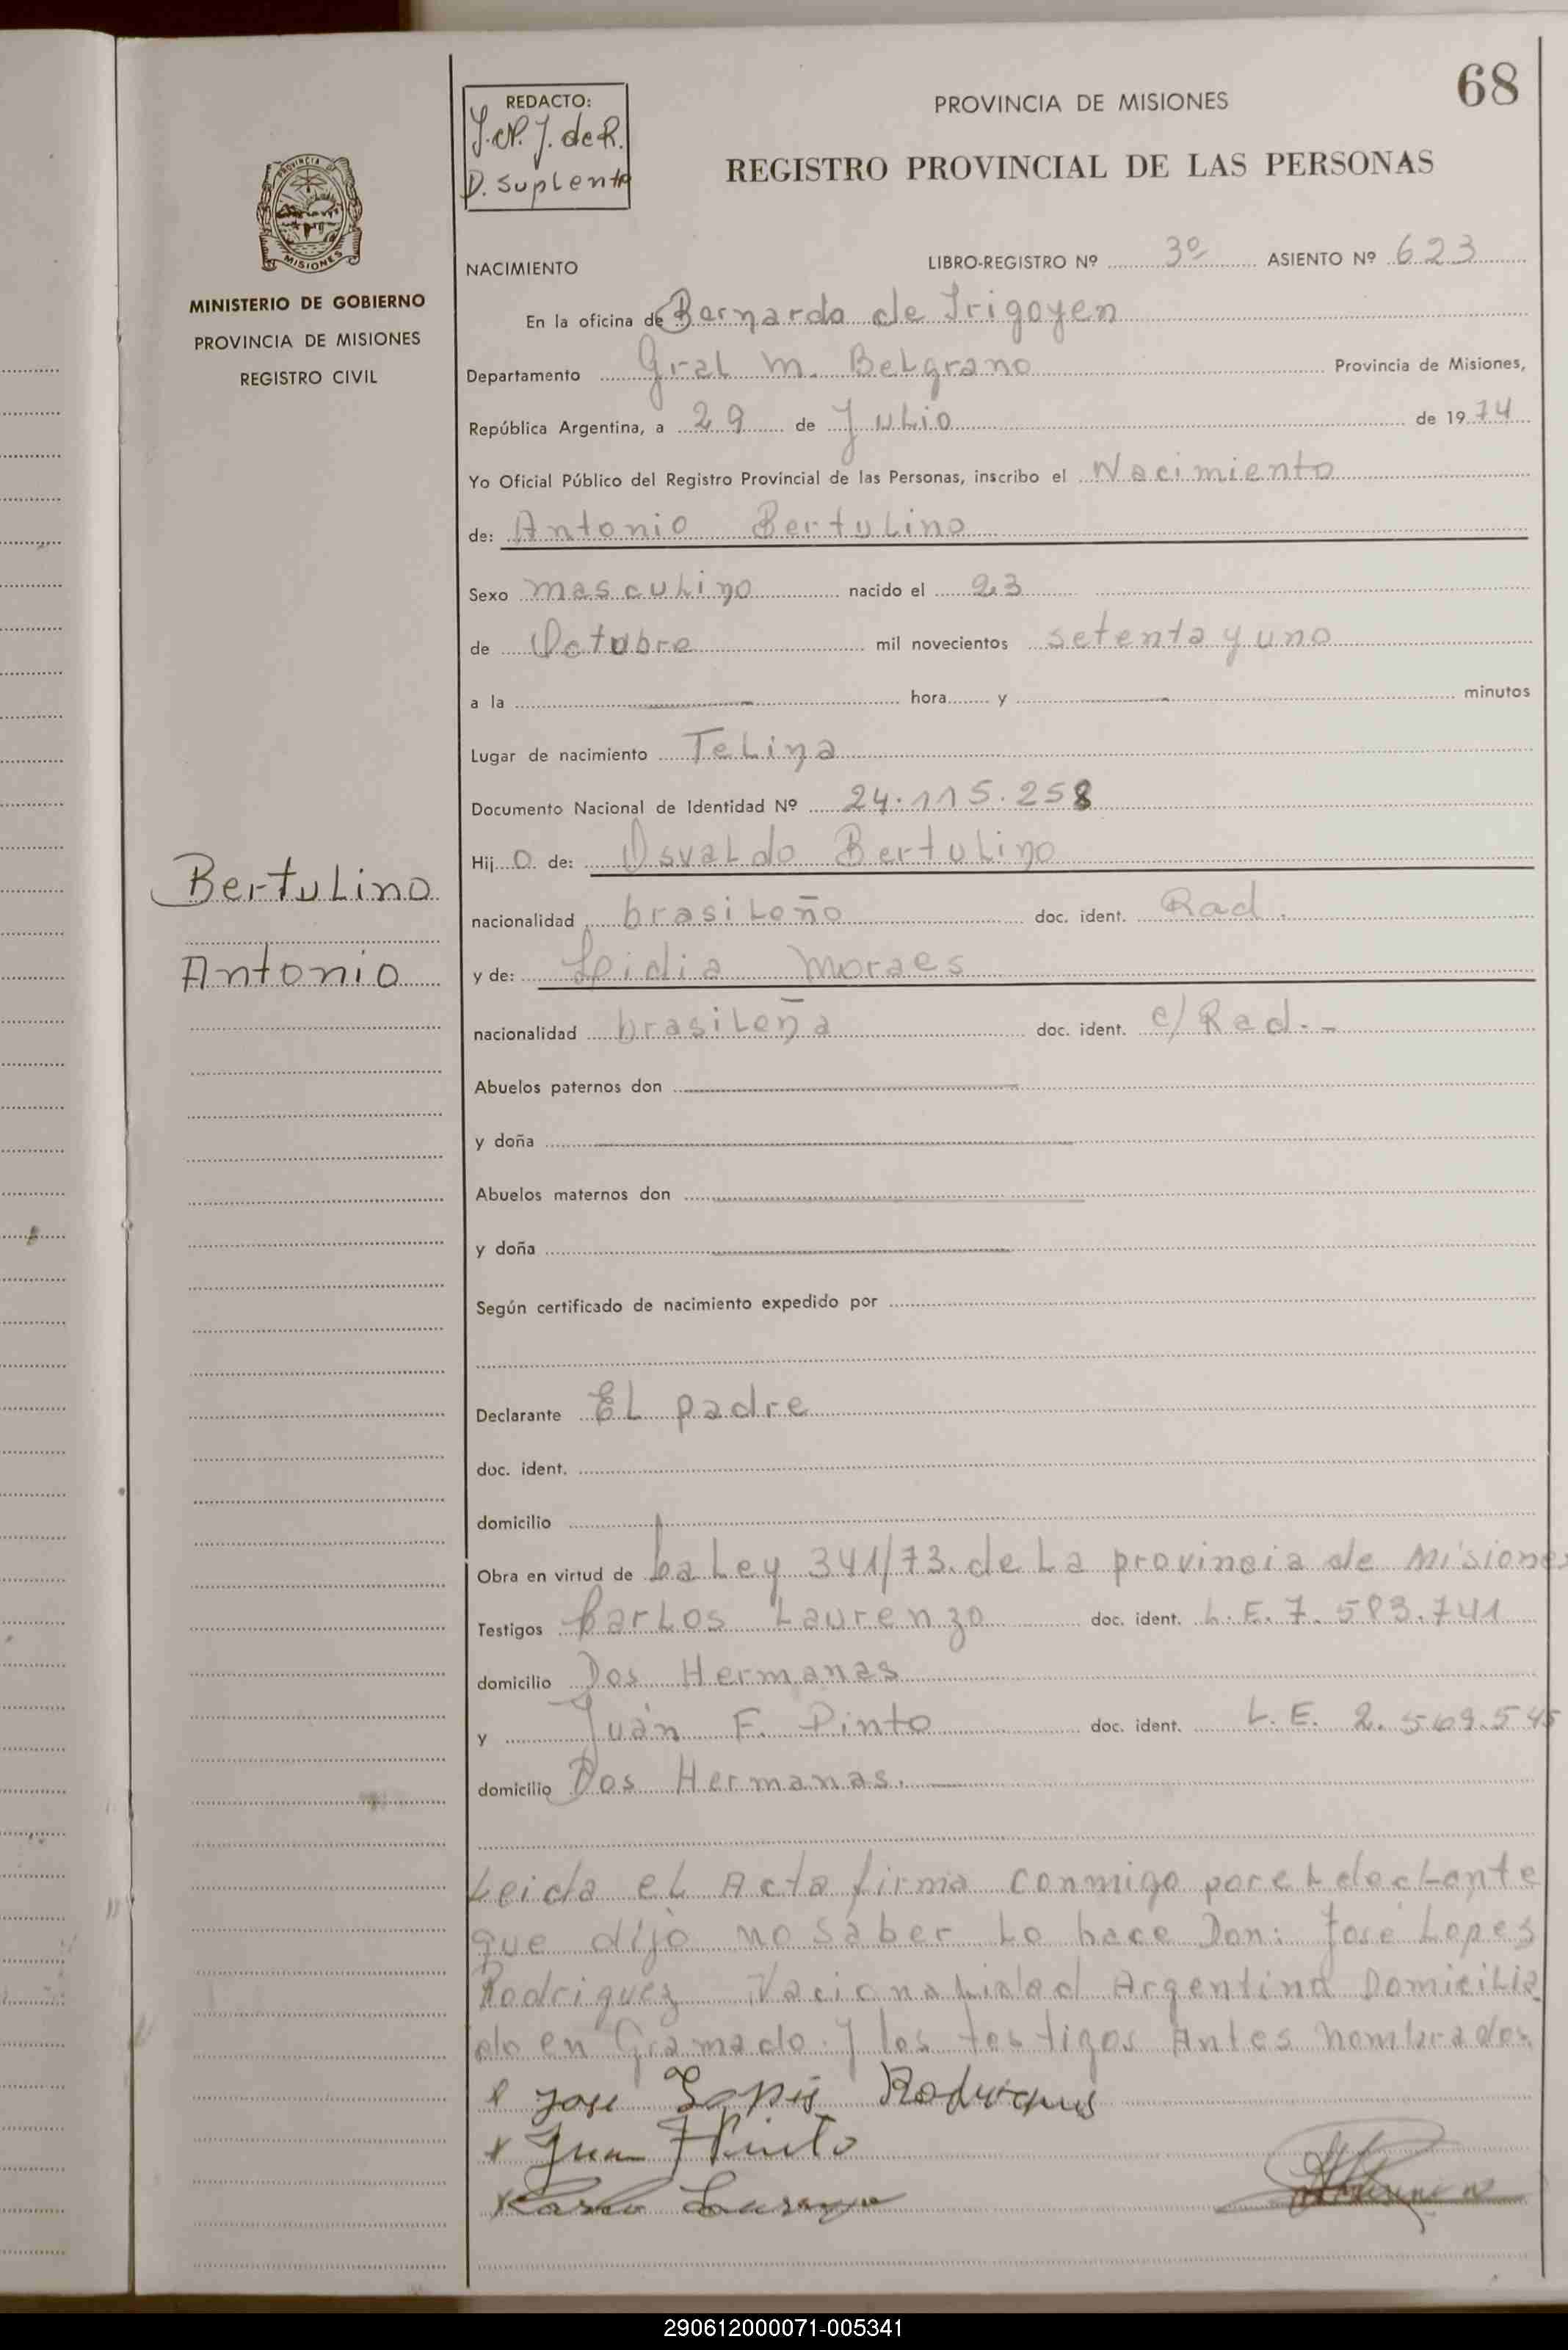 68
REDACTO:
J. N. J. de R.
D. Suplente
PROVINCIA DE MISIONES
REGISTRO PROVINCIAL DE LAS PERSONAS
PROVINCIA
MISIONES
MINISTERIO DE GOBIERNO
PROVINCIA DE MISIONES
REGISTRO CIVIL
NACIMIENTO LIBRO-REGISTRO Nº 3º ASIENTO Nº 623
En la oficina de Bernardo de Irigoyen
Departamento Gral M. Belgrano Provincia de Misiones,
República Argentina, a 29 de Julio de 1974
Yo Oficial Público del Registro Provincial de las Personas, inscribo el Nacimiento
de: Antonio Bertulino
Sexo masculino nacido el 23
de Octubre mil novecientos setenta y uno
a la hora y minutos
Lugar de nacimiento Telina
Documento Nacional de Identidad Nº 24.115.258
Hijo de: Osvaldo Bertulino
Bertulino
nacionalidad brasileño doc. ident. Rad.
Antonio
y de: Leidia Moraes
nacionalidad brasileña doc. ident. c/ Rad.-
Abuelos paternos don
y doña
Abuelos maternos don
y doña
Según certificado de nacimiento expedido por
Declarante El padre
doc. ident.
domicilio
Obra en virtud de La Ley 341/73. de La provincia de Misiones
Testigos Carlos Laurenzo doc. ident. L. E. 7.583.741
domicilio Dos Hermanas
y Juán F. Pinto doc. ident. L. E. 2.569.545
domicilio Dos Hermanas.
Leida el Acta firma conmigo por el declante
que dijo no saber Lo hace Don: José Lopes
Rodriguez Nacionalidad Argentina Domicilia
do en Gramado. y los testigos Antes nombrados.
x José Lopes Rodrigues
x Juan F Pinto
x Carlo
290612000071-005341